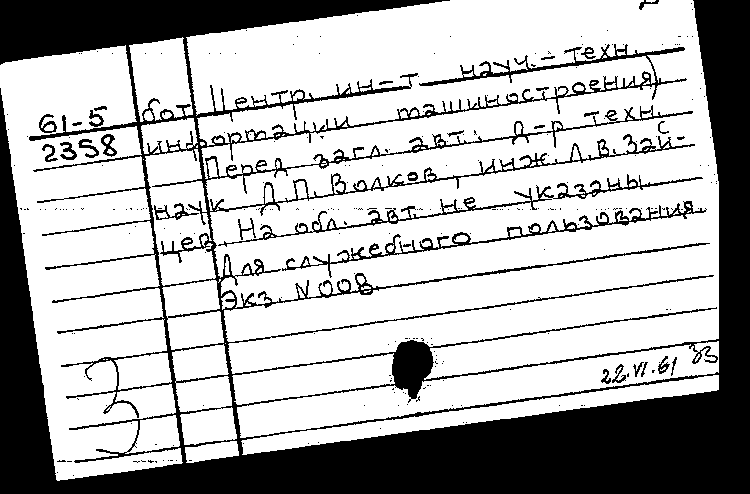 61-5 бот. Центр. ин-т науч.-техн.
2358 информации машиностроения)
Перед загл. авт.: д-р техн.
наук Д.П. Волков, инж. Л.В. Зай-
цев. На обл. авт. не указаны.
Для служебного пользования.
Экз. N 008.
3
22.VI.61